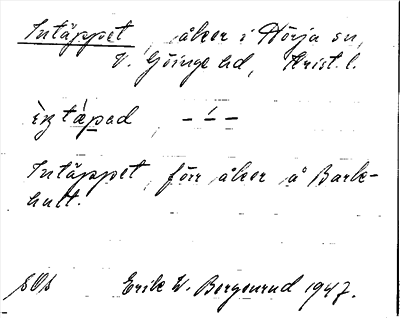 Intäppet, åker i Hörja sn,
V. Göinge hd, Krist. l.
tæpad, – ´ –
Intäppet, förr åker å Bark-
hult.
SOs Erik W. Bergenrud 1947.